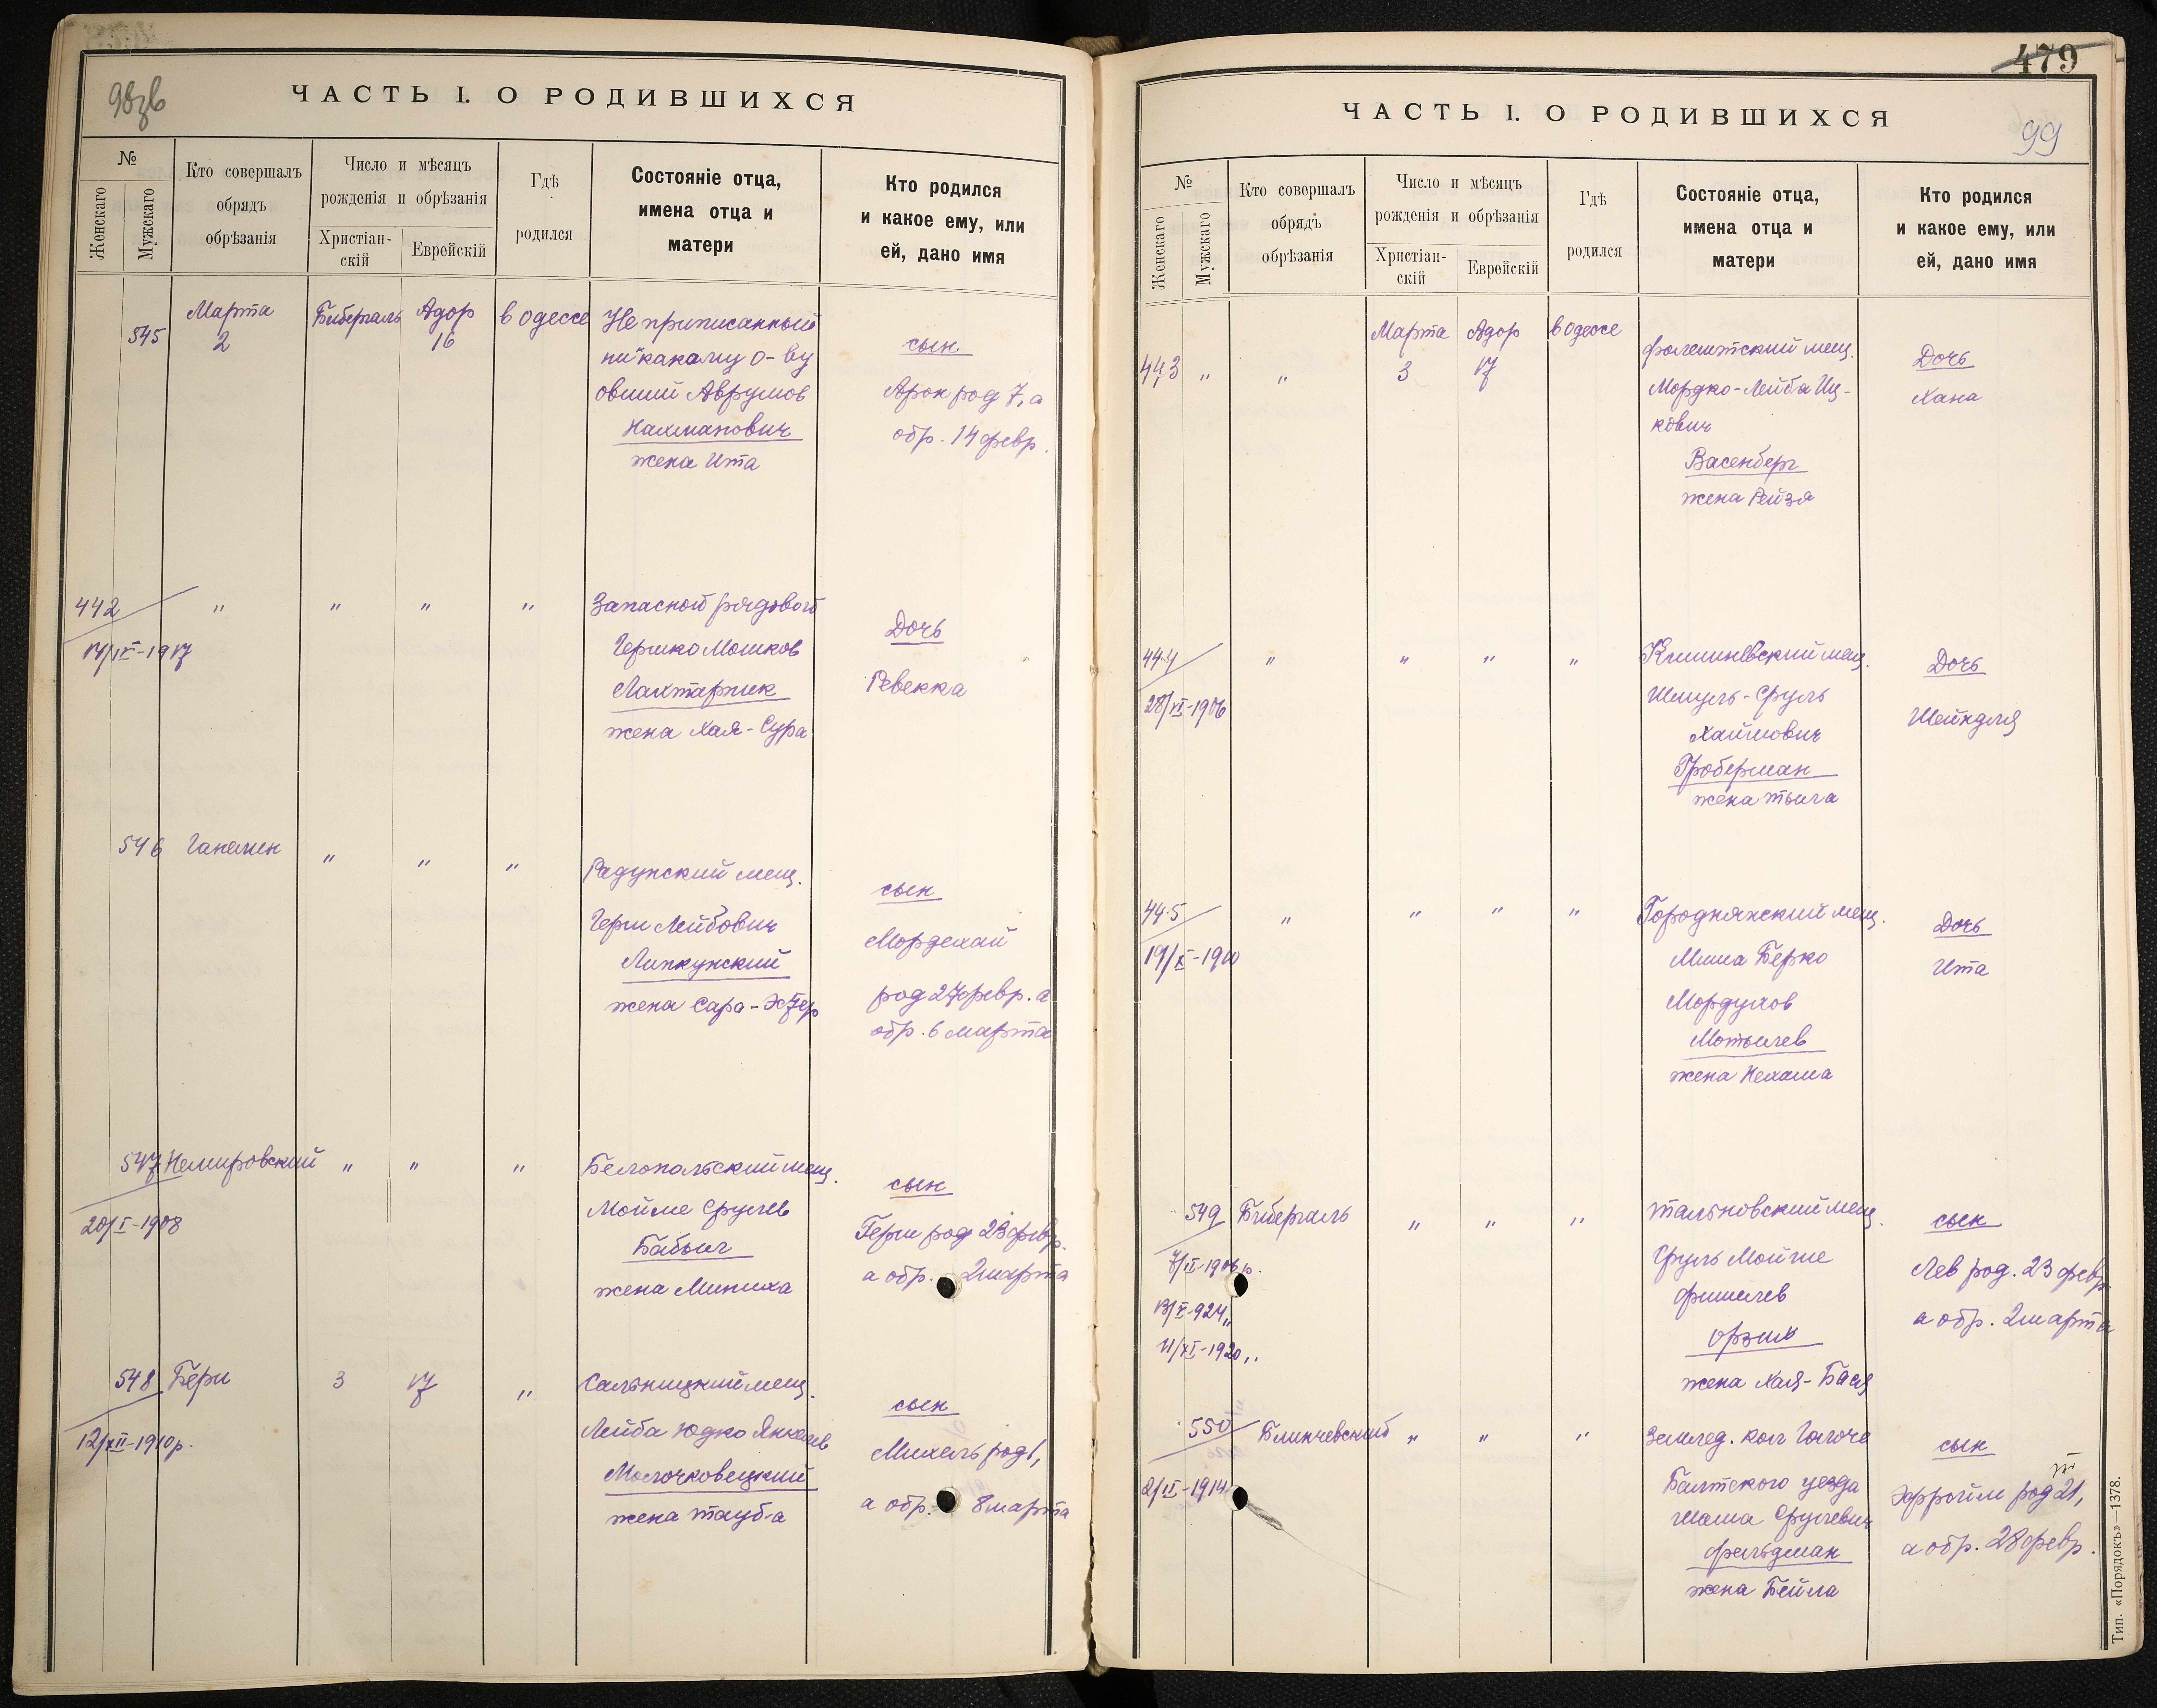 98зв
ЧАСТЬ I. О РОДИВШИХСЯ
№
Женскаго
Мужскаго
Кто совершалъ
обрядъ
обрѣзанія
Число и мѣсяцъ
рожденія и обрѣзанія
Христіан-
скій
Еврейскій
Гдѣ
родился
Состояніе отца,
имена отца и
матери
Кто родился
и какое ему, или
ей, дано имя
545
Марта
2
Бибергаль
Адор
16
в Одессе
Не приписанный
ни к какому о-ву
Аврумов
Нахманович
жена Ита
сын
Арон род 7, а
обр. 14 февр.
442
17/IV-1917
" " " "
Запасной рядовой
Гершко Мошков
Лахтарник
жена Хая-Сура
Дочь
Ревекка
546 Ганелин " " "
Радунский мещ.
Герш Лейбович
Липкунский
жена Сара-Эстер
сын
Мордехай
род 27 февр. а
обр. 6 марта
547 Немировский " " "
20/I-1908
Белопольский мещ.
Мойше Срулев
Бабыч
жена Миниха
сын
Герш род 23 февр.
а обр. 2 марта
548 Берш 3 17 "
12/XII-1910р.
Сальницкий мещ.
Лейба Юдко Янкелев
Молочковецкий
жена Тауба
сын
Михель род 1,
а обр. 8 марта
479
99
ЧАСТЬ I. О РОДИВШИХСЯ
№
Женскаго
Мужскаго
Кто совершалъ
обрядъ
обрѣзанія
Число и мѣсяцъ
рожденія и обрѣзанія
Христіан-
скій
Еврейскій
Гдѣ
родился
Состояніе отца,
имена отца и
матери
Кто родился
и какое ему, или
ей, дано имя
443 " "
Марта
3
Адор
17
в Одессе
Фалештский мещ.
Мордко-Лейба Иц-
кович
Васенберг
жена Рейзя
Дочь
Хана
444
28/VI-1906
" " " "
Кишиневский мещ.
Шмуль-Сруль
Хаимович
Гроберман
жена
Дочь
Шейндля
445
19/X-1910
" " " "
Городнянский мещ.
Миша Берко
Мордухов
Мотылев
жена Нехама
Дочь
Ита
549 Бибергаль " " "
13/V-924 "
11/XI-1920 "
Тальновский мещ.
Сруль Мойше
Фишилев
жена Хая-Бася
сын
Лев род. 23 февр.
а обр. 2 марта
550 Блинчевский " " "
2/II-1914
Землед. кол
Балтского уезда
Срулевич
Фельдман
жена Бейла
сын
Эфроим род 21,
а обр. 28 февр.
Тип. «Порядокъ»—1378.